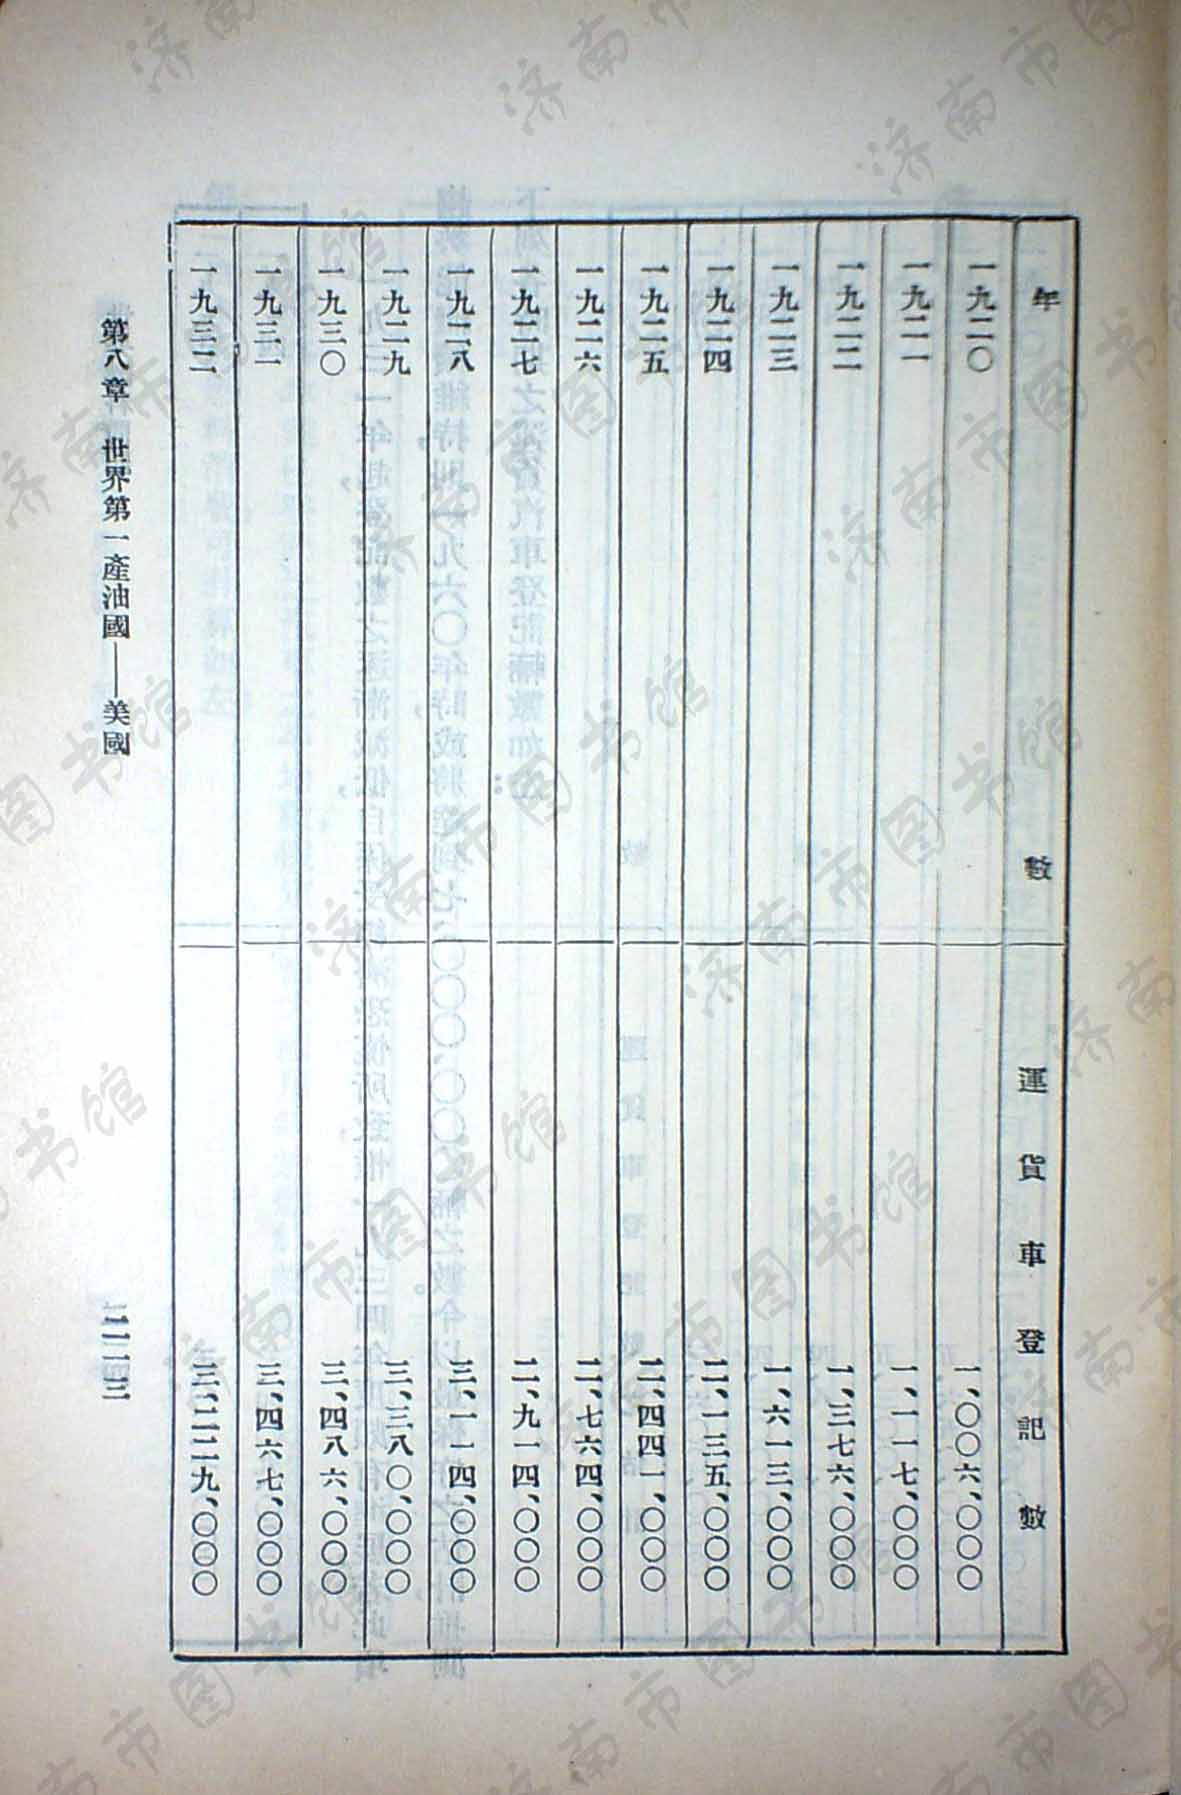 年數 運貨車登記數
一九二〇 一、〇〇六、〇〇〇
一九二一 一、一一七、〇〇〇
一九二二 一、三七六、〇〇〇
一九二三 一、六一三、〇〇〇
一九二四 二、一三五、〇〇〇
一九二五 二、四四一、〇〇〇
一九二六 二、七六四、〇〇〇
一九二七 二、九一四、〇〇〇
一九二八 三、一一四、〇〇〇
一九二九 三、三八〇、〇〇〇
一九三〇 三、四八六、〇〇〇
一九三一 三、四六七、〇〇〇
一九三二 三、二二九、〇〇〇
第八章 世界第一產油國——美國
济南市图书馆